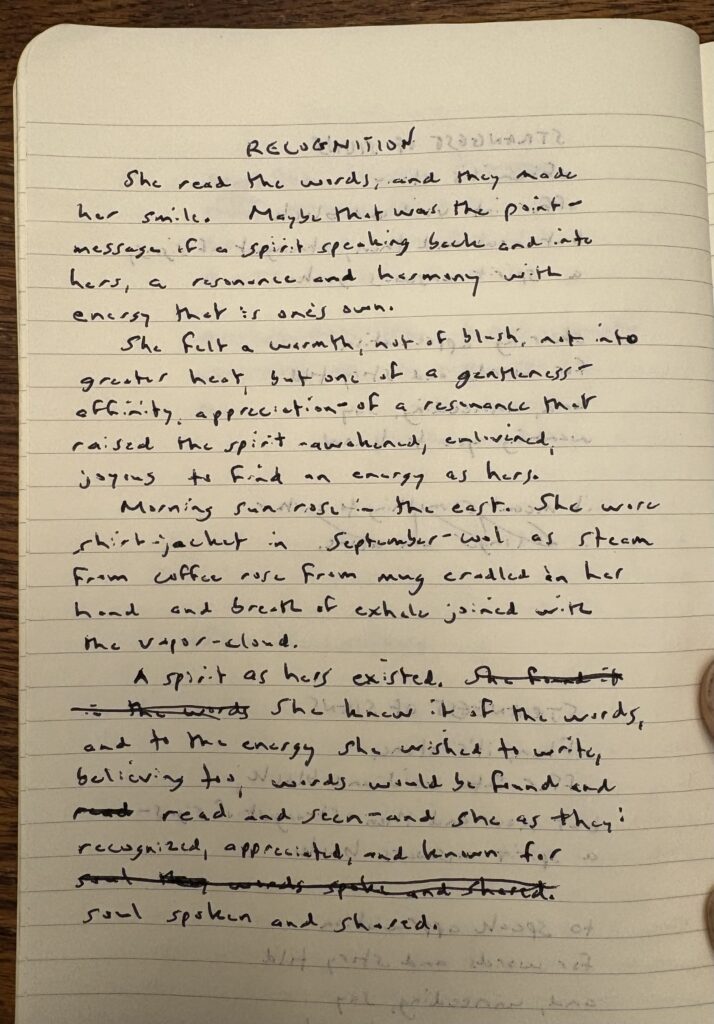 RECOGNITION
She read the words, and they made
her smile. Maybe that was the point-
message of a spirit speaking back and into
hers, a resonance and harmony with
energy that is one's own.
She felt a warmth, not of blush, not into
greater heat, but one of a gentleness-
affinity, appreciation-of a resonance that
raised the spirit-awakened, enlivened,
joyous to find an energy as hers.
Morning sun rose in the east. She wore
shirt-jacket in September-cool as steam
from coffee rose from mug cradled in her
hand and breath of exhale joined with
the vapor-cloud.
A spirit as hers existed. She found it
in the words She knew it of the words,
and to the energy she wished to write,
believing too, words would be found and
read read and seen-and she as they:
recognized, appreciated, and known for
soul words spoke and shared.
soul spoken and shared.